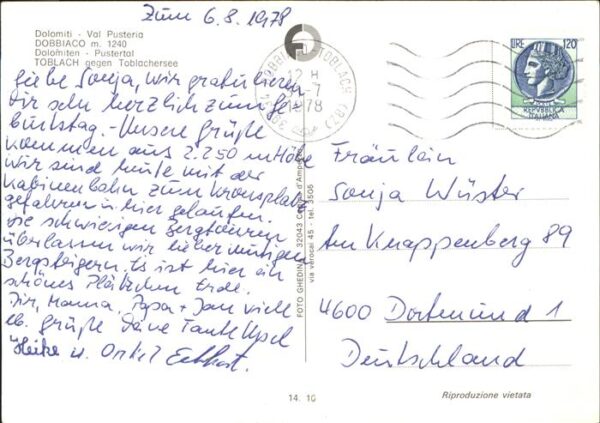 Zum 6.8.1978
Dolomiti - Val Pusteria
DOBBIACO m. 1240
Dolomiten - Pustertal
TOBLACH gegen Toblachersee
Liebe Sonja, wir gratulieren
Dir sehr herzlich zum Ge-
burtstag. - Unsere Grüße
kommen aus 2.250 m Höhe
Wir sind heute mit der
Kabinenbahn zum Kronplatz
gefahren u. hier gelaufen.
Die schwierigen Bergtouren
überlassen wir lieber mutigen
Bergsteigern. Es ist hier ein
schönes Plätzchen Erde.
Dir, Mama, Papa + Jan viele
lb. Grüße Deine Tante
Heike u. Onkel Eckhart.
FOTO GHEDINA - 32043 Cortina d'Ampezzo
via verocai 45 - tel. 3506
DOBBIACO
TOBLACH (BZ)
12 H
-7
1978
LIRE 120
REPVBBLICA
ITALIANA
Fräulein
Sonja Wüster
Am Knappenberg 89
4600 Dortmund 1
Deutschland
14. 10
Riproduzione vietata